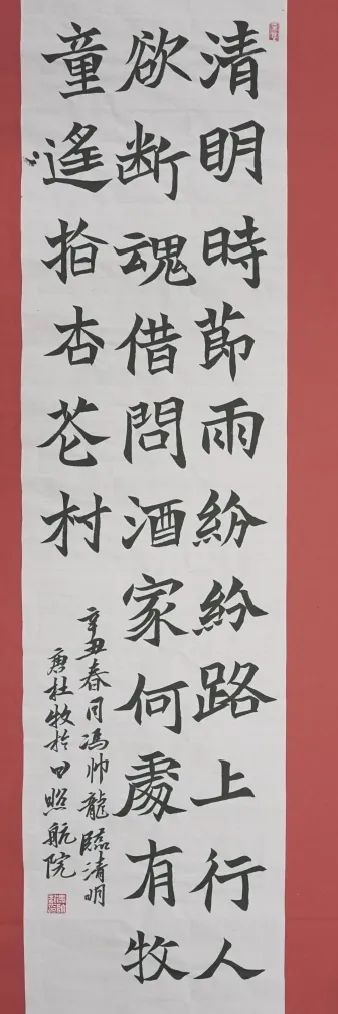 清明時節雨紛紛路上行人
欲断魂借問酒家何處有牧
童遙拍杏花村
辛丑春月馮帅龍臨清明
唐杜牧於日照航院